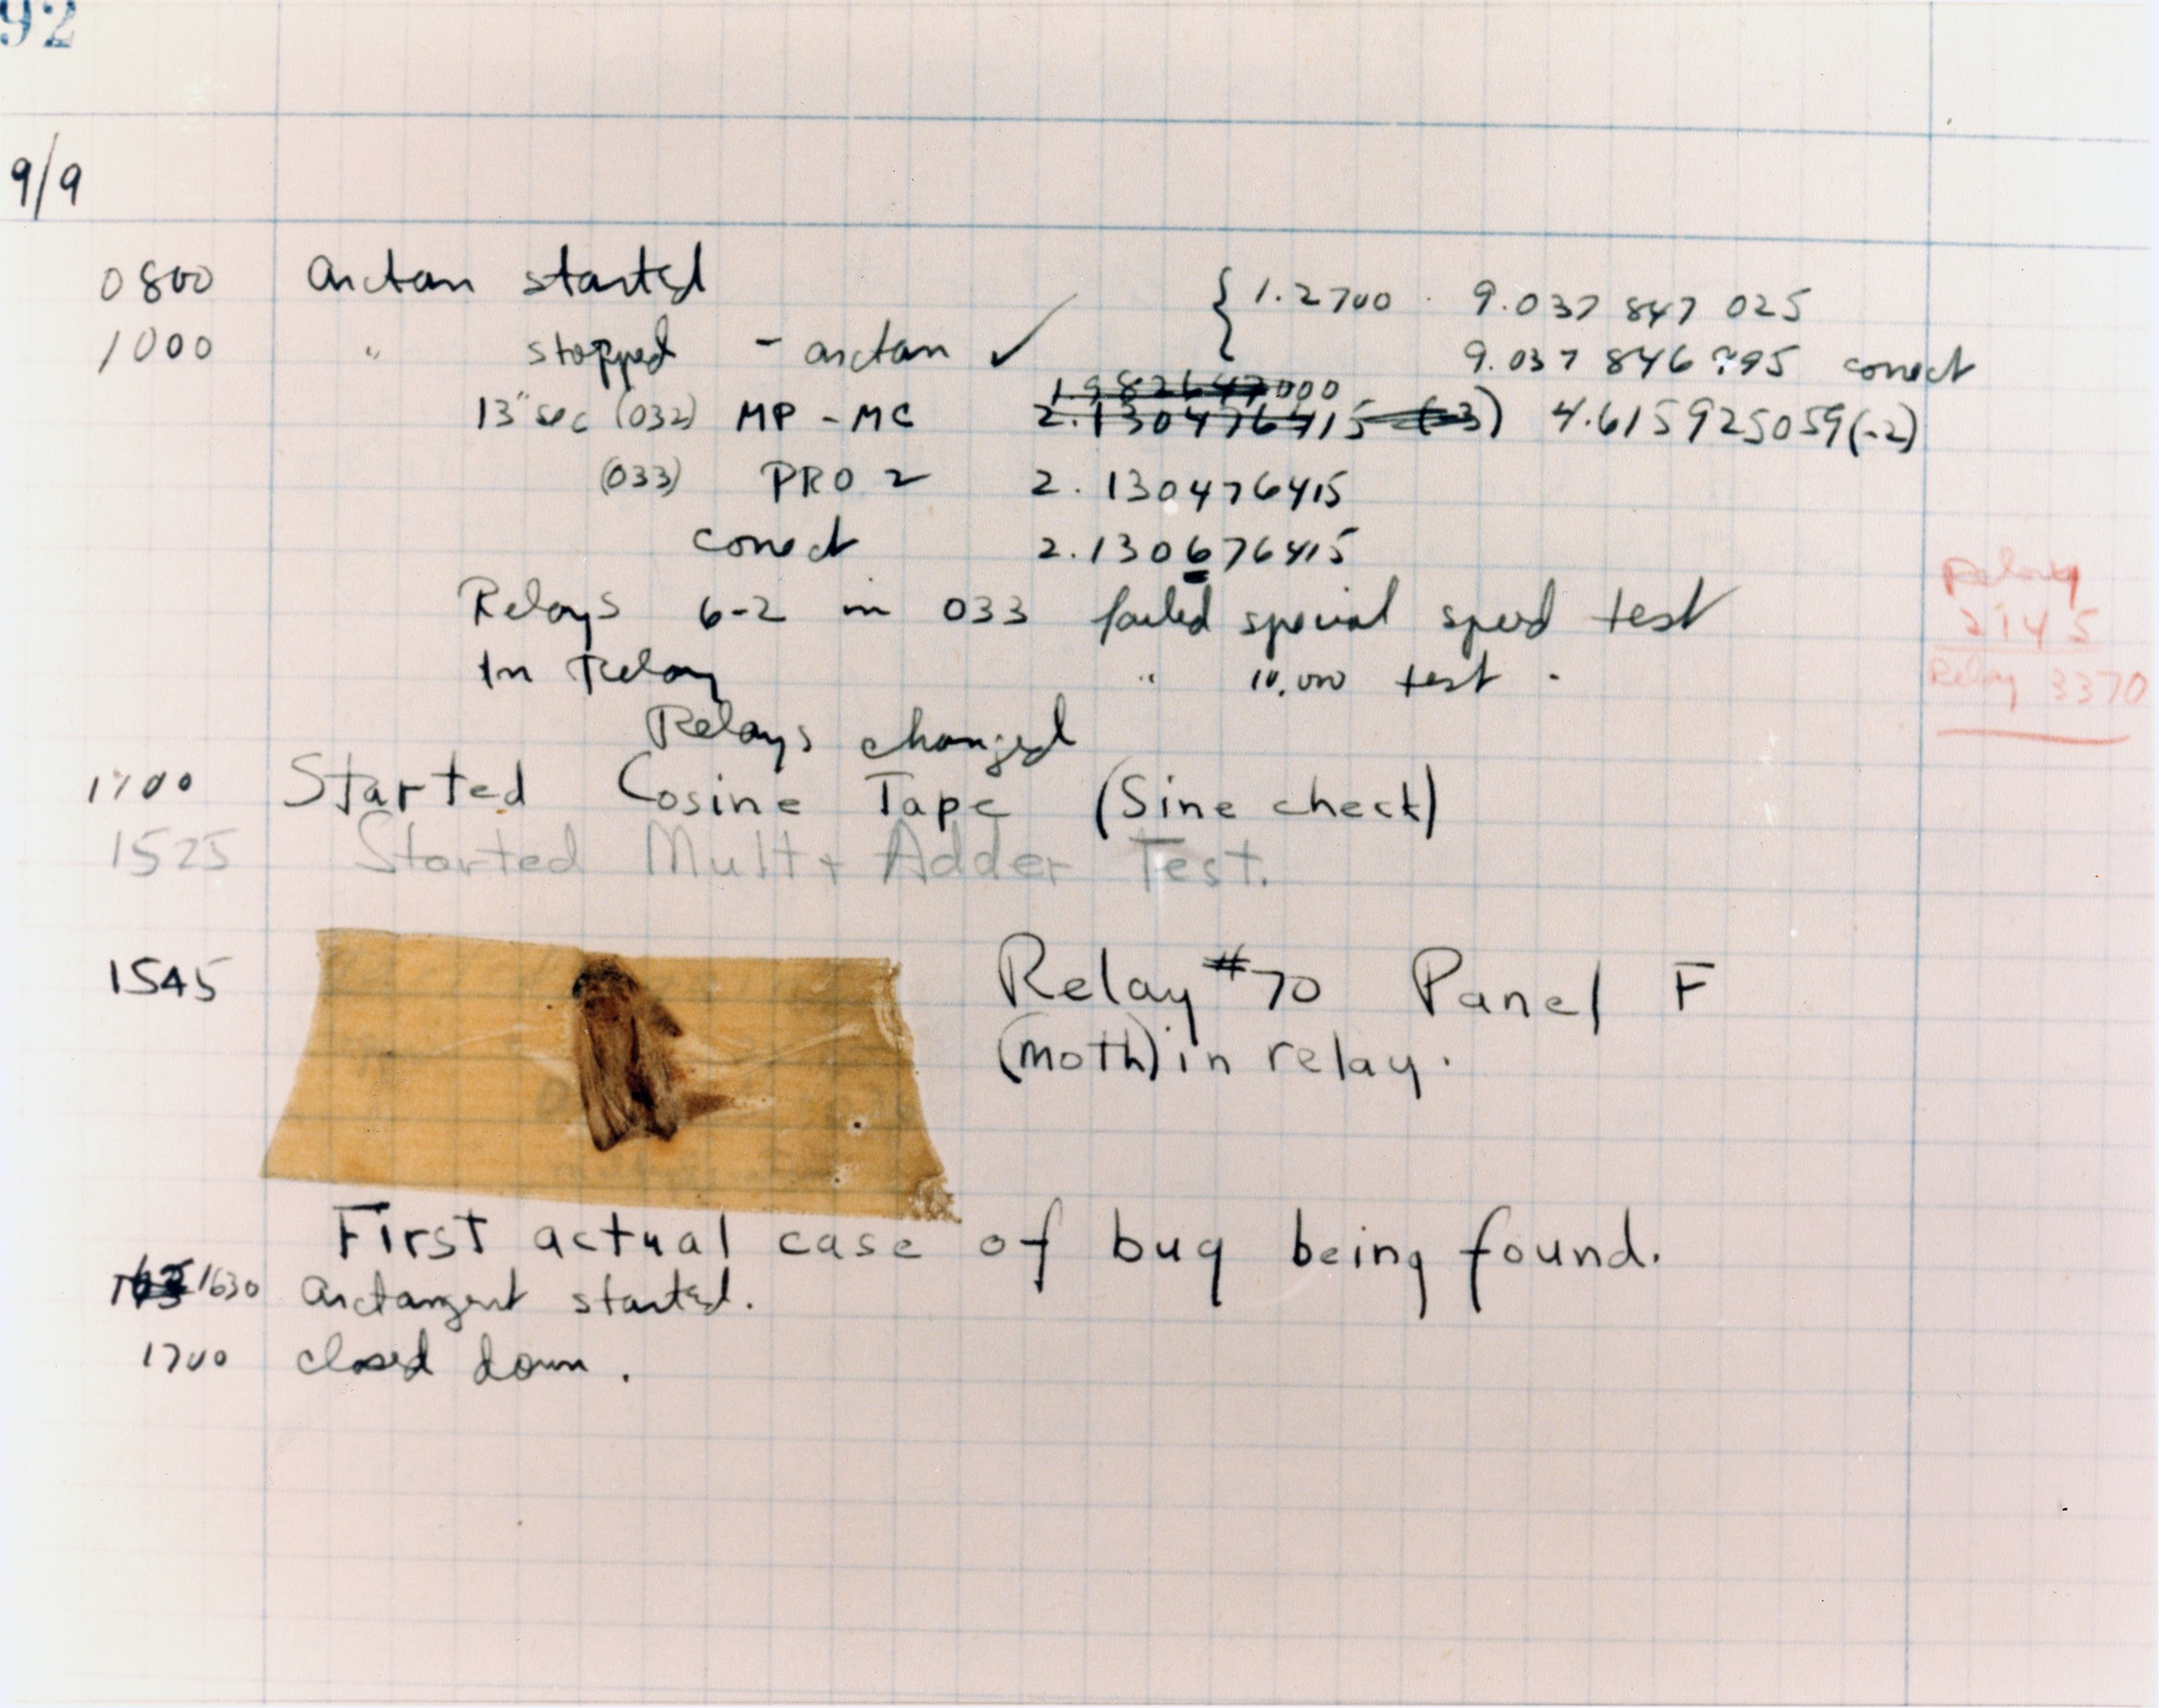 92
9/9
0800 arctan started { 1.2700 9.037 847 025
1000 " stopped - arctan ✓ 9.037 846 995 correct
1.982647000
13" sec (032) MP - MC 2.130476415 (-3) 4.615925059(-2)
(033) PRO 2 2.130476415
correct 2.130676415
Relays 6-2 in 033 failed special speed test
In Relay " 10,000 test.
Relays changed
Relay
2145
Relay 3370
1700 Started Cosine Tape (Sine check)
1525 Started Mult + Adder Test.
1545 Relay #70 Panel F
(moth) in relay.
First actual case of bug being found.
1630 arctangent started.
1700 closed down.